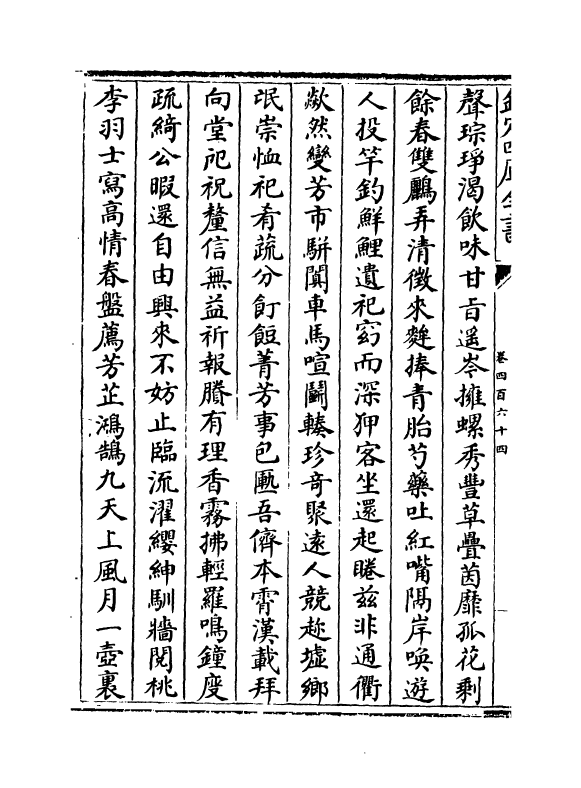 欽定四庫全書
卷四百六十四
聲琮琤渴飲味甘旨遥岑擁螺秀豐草疊茵靡孤花剩
餘春雙鸝弄清徵來麰捧青胎芍藥吐紅嘴隔岸喚遊
人投竿釣鮮鯉遺祀窈而深狎客坐還起睠兹非通衢
歘然變芳市駢闐車馬喧鬭轃珍奇聚逺人競趂墟鄉
氓崇恤祀肴蔬分飣餖菁芳事包匭吾儕本霄漢載拜
向堂戺祝釐信無益祈報賸有理香霧拂輕羅鳴鐘度
疏綺公暇還自由興來不妨止臨流濯纓紳馴牆閱桃
李羽士寫高情春盤薦芳芷鴻鵠九天上風月一壺裏